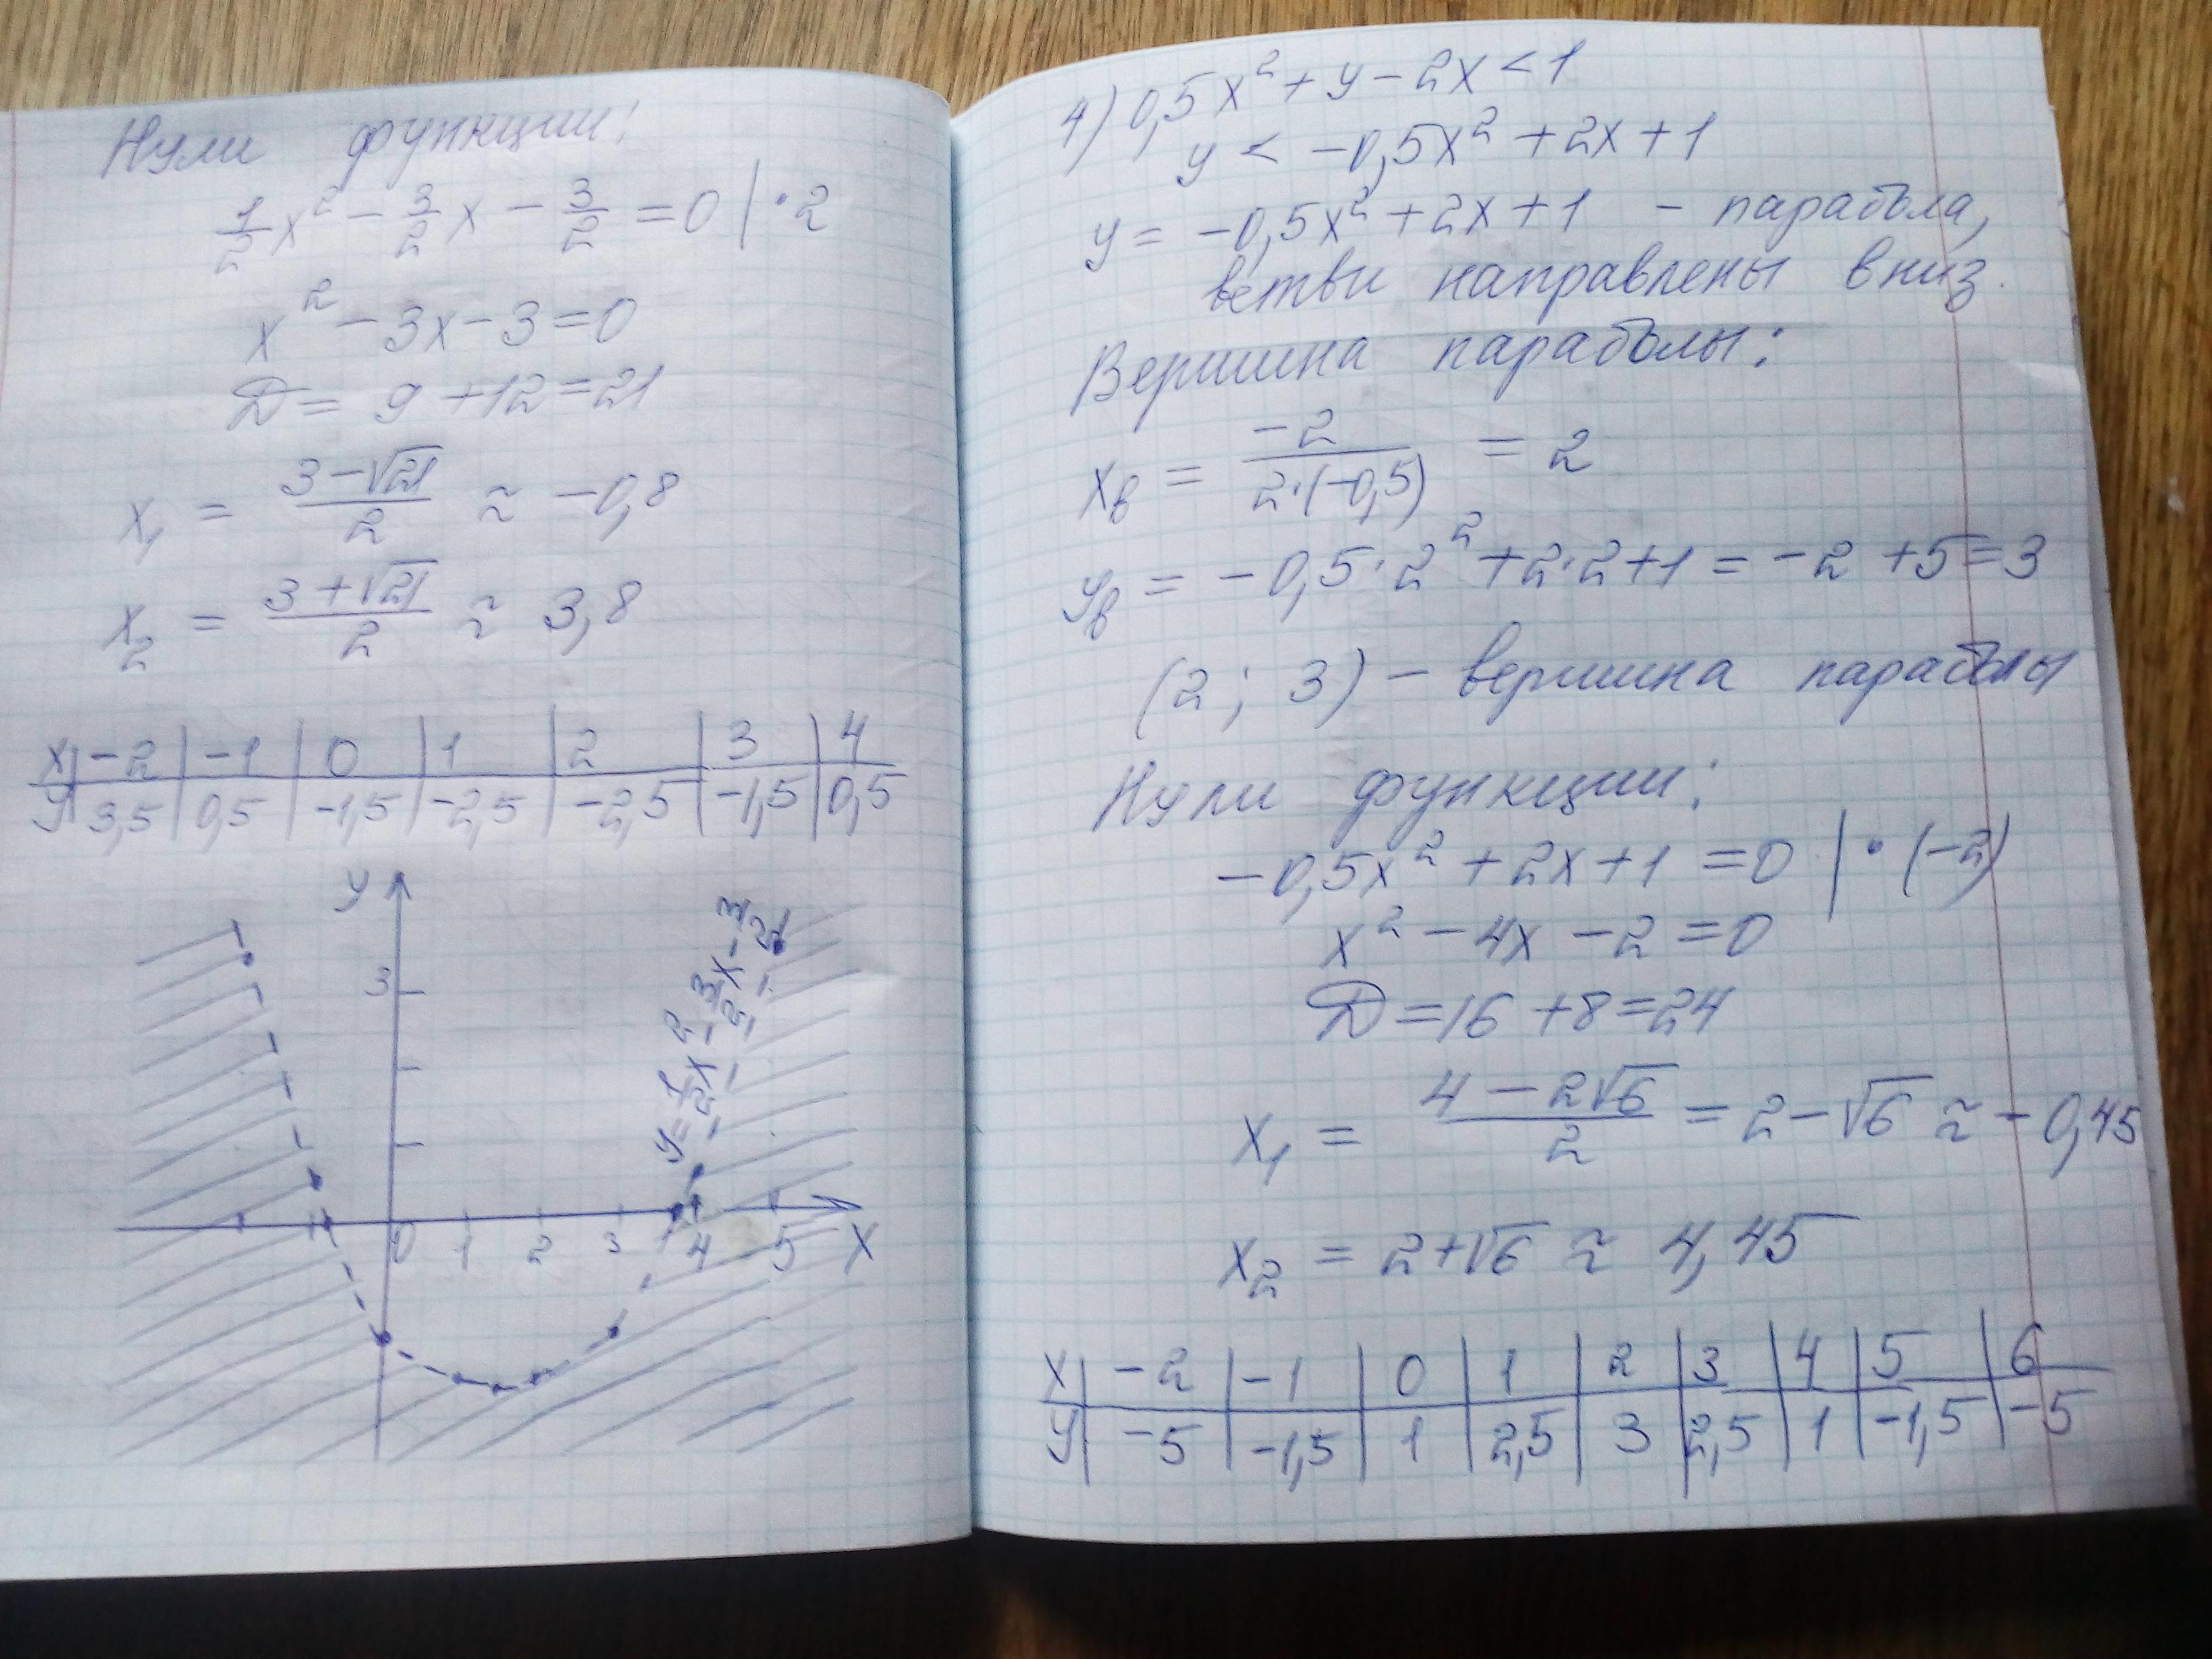 Нули функции:
1/2 x² − 3/2 x − 3/2 = 0 | · 2
x² − 3x − 3 = 0
D = 9 + 12 = 21
x₁ = (3 − √21)/2 ≈ −0,8
x₂ = (3 + √21)/2 ≈ 3,8
x | −2 | −1 | 0 | 1 | 2 | 3 | 4
y | 3,5 | 0,5 | −1,5 | −2,5 | −2,5 | −1,5 | 0,5
y
3
y = 1/2 x² − 3/2 x − 3/2
0 1 2 3 4 5 x
4) 0,5x² + y − 2x < 1
y < −0,5x² + 2x + 1
y = −0,5x² + 2x + 1 – парабола,
ветви направлены вниз.
Вершина параболы:
xв = −2/(2·(−0,5)) = 2
yв = −0,5·2² + 2·2 + 1 = −2 + 5 = 3
(2; 3) – вершина параболы
Нули функции:
−0,5x² + 2x + 1 = 0 | · (−2)
x² − 4x − 2 = 0
D = 16 + 8 = 24
x₁ = (4 − 2√6)/2 = 2 − √6 ≈ −0,45
x₂ = 2 + √6 ≈ 4,45
x | −2 | −1 | 0 | 1 | 2 | 3 | 4 | 5 | 6
y | −5 | −1,5 | 1 | 2,5 | 3 | 2,5 | 1 | −1,5 | −5